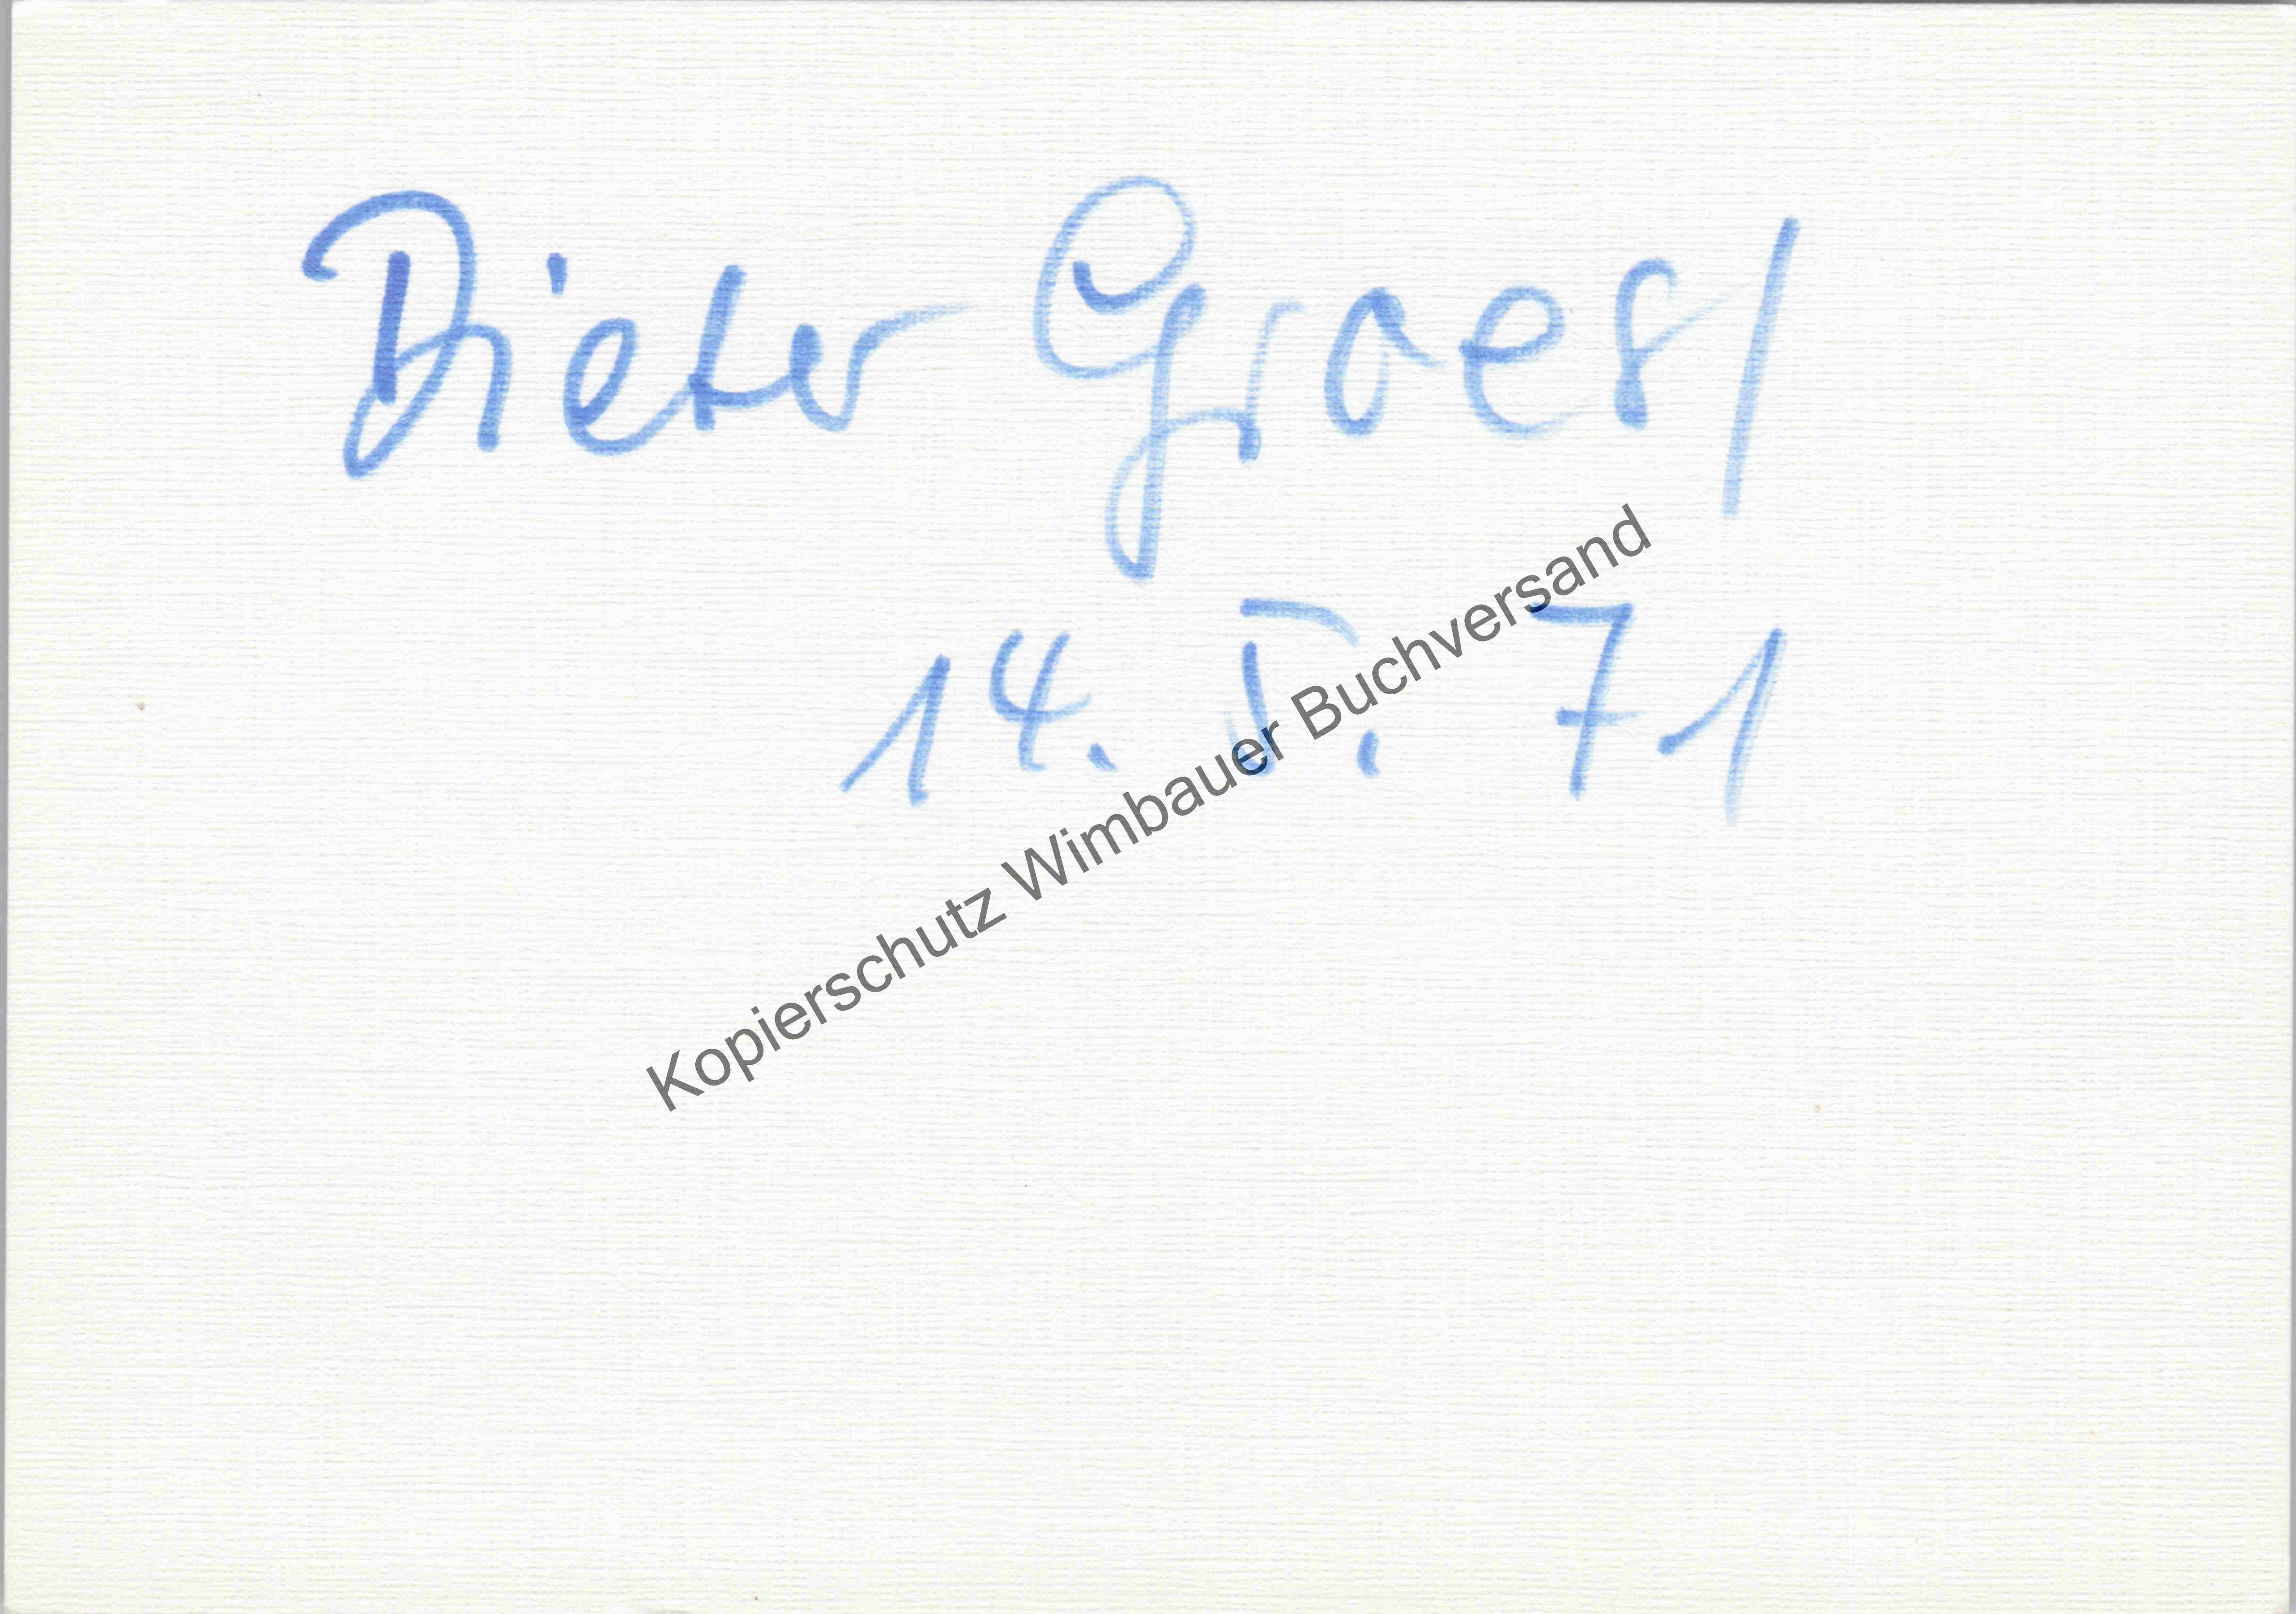 Dieter Groest
14. V. 71
Kopierschutz Wimbauer Buchversand